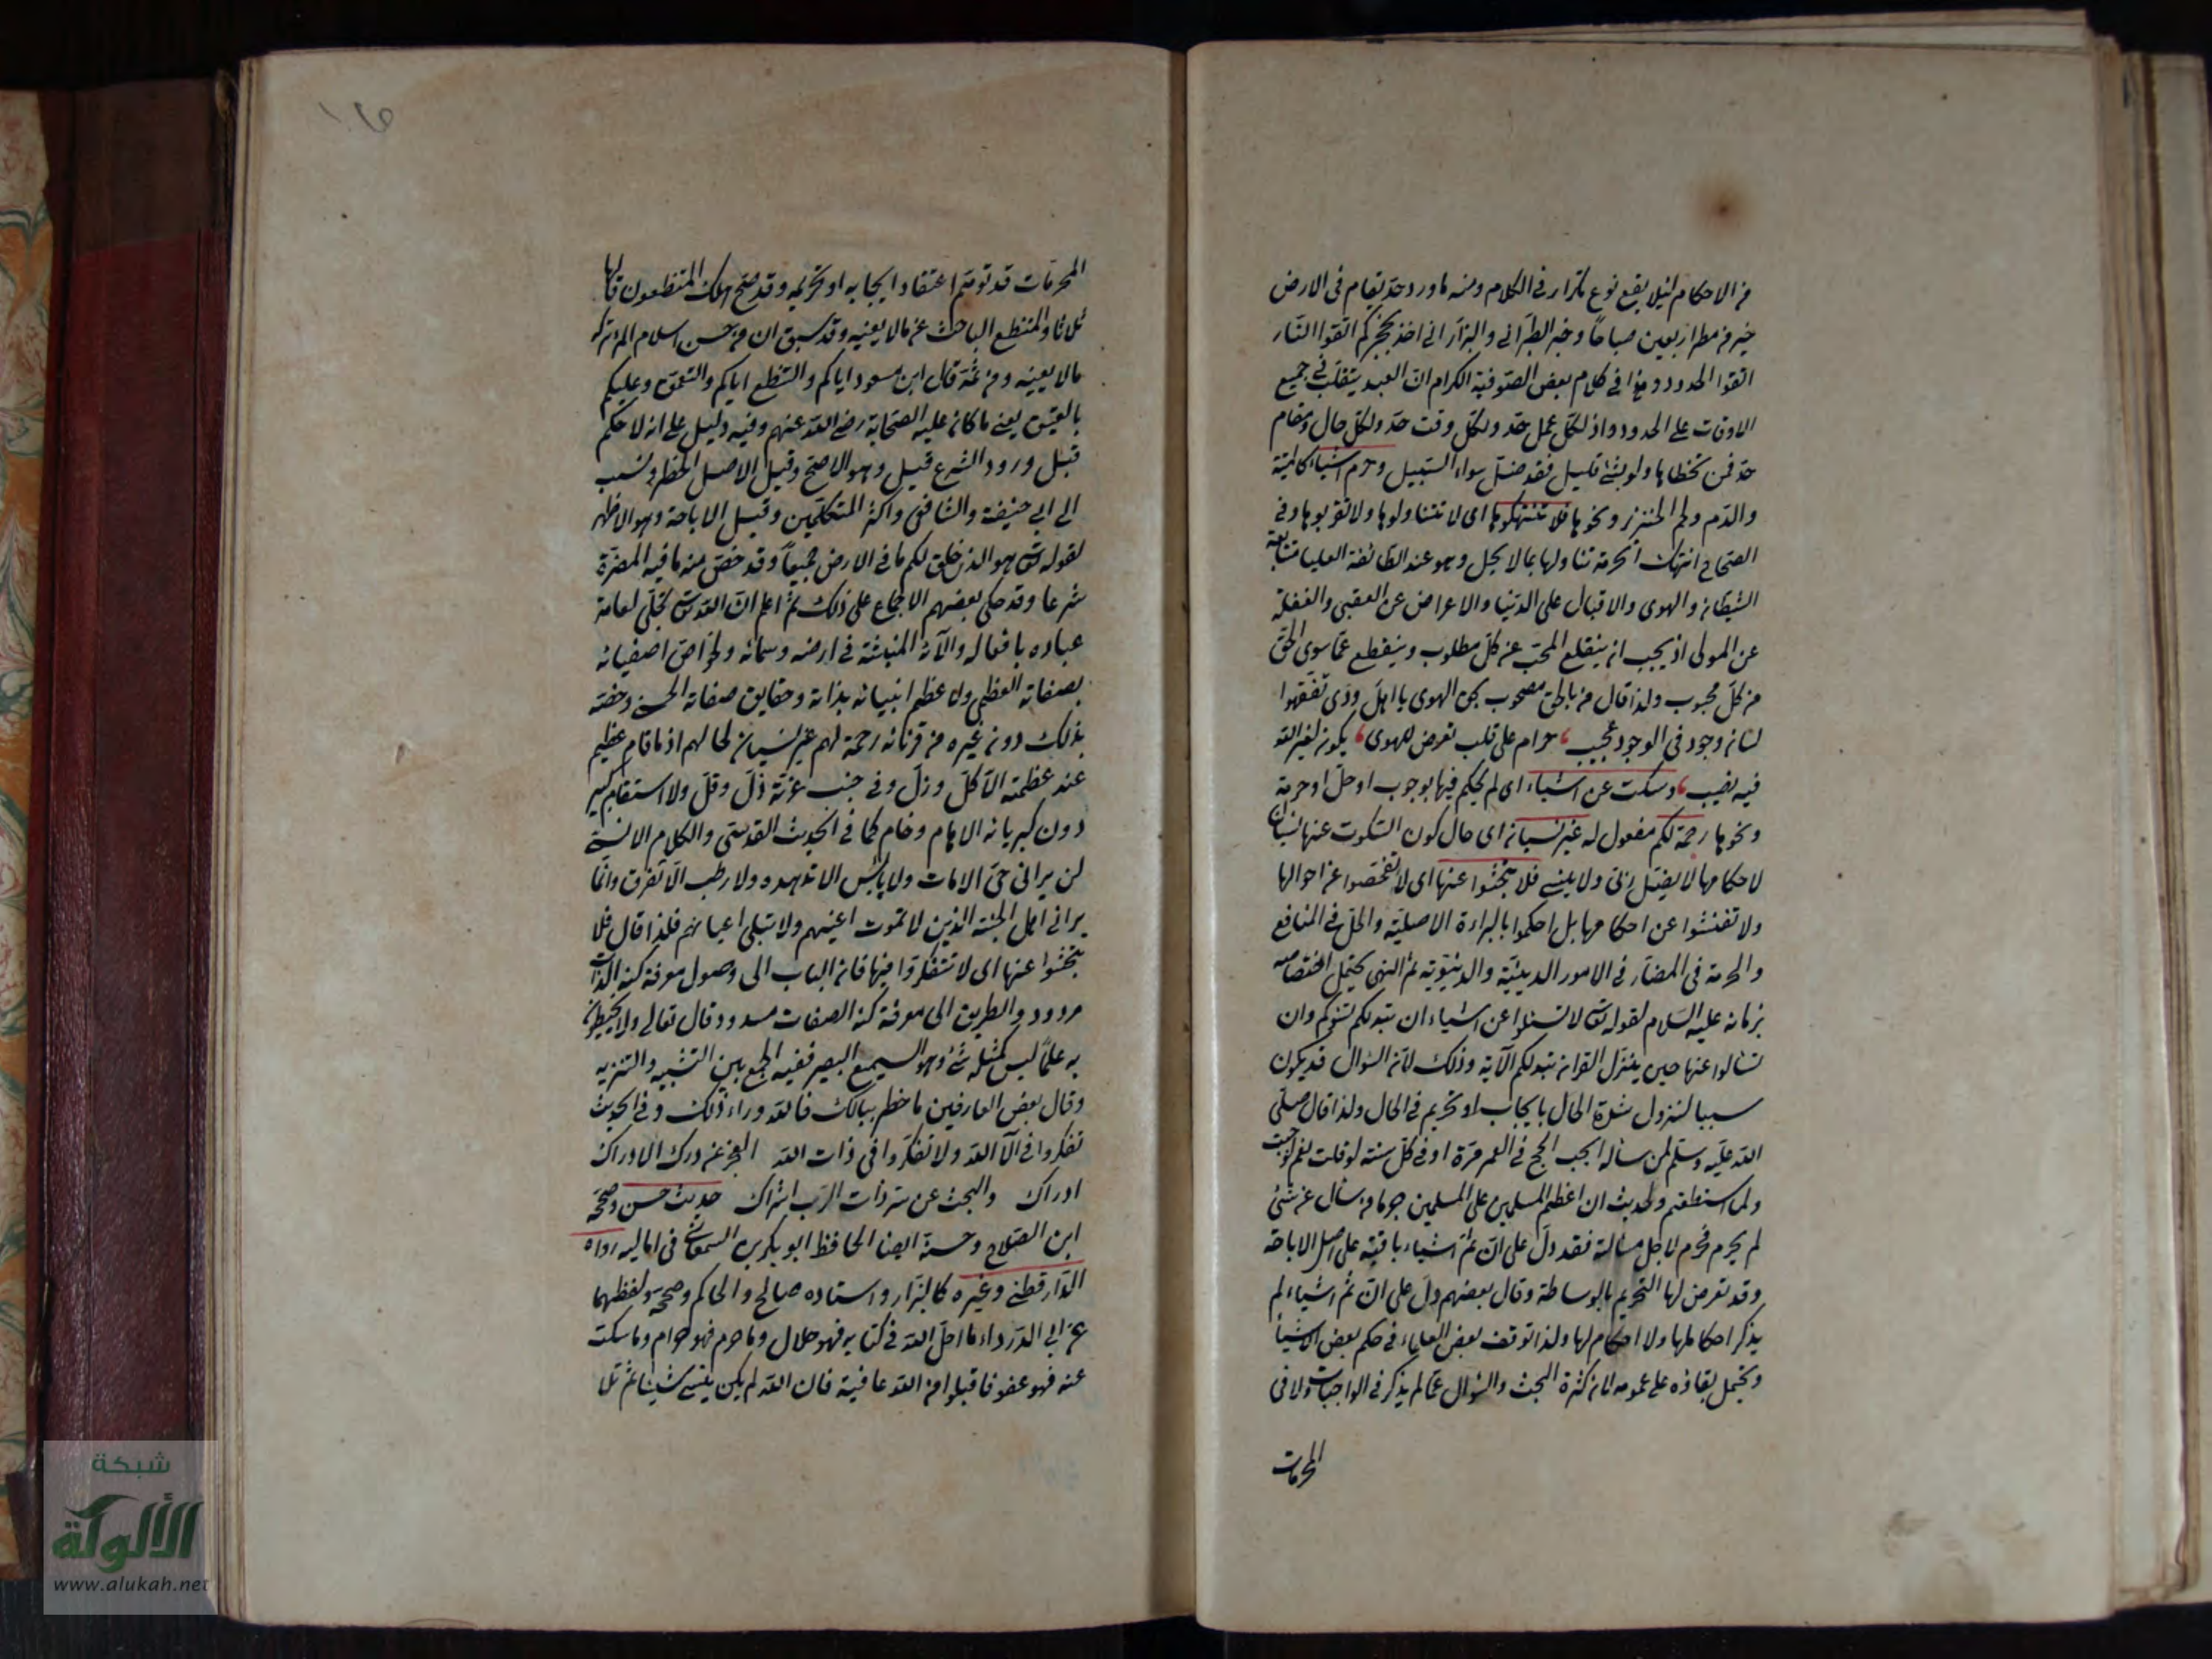 من الاحكام لئلا يقع نوع تكرار في الكلام ومنه ما ورد حد يقام في الارض
خير من مطر اربعين صباحا وخبر الطبراني والبزار اني اخذ بحجزكم اتقوا النار
اتقوا الحدود وفي كلام بعض الصوفية الكرام ان العبد يتقلب في جميع
الاوقات على الحدود اذ لكل عمل حد ولكل وقت حد ولكل حال ومقام
حد فمن تخطاها ولو بشئ قليل فقد ضل سواء السبيل وحرم اشياء كالميتة
والدم ولحم الخنزير ونحوها فلا تنتهكوها اى لا تتناولوها ولا تقربوها وفي
الصحاح انتهاك الحرمة تناولها بما لا يحل وهو عند الطائفة العليا متابعة
الشيطان والهوى والاقبال على الدنيا والاعراض عن العقبى والغفلة
عن المولى اذ يجب ان ينقلع المحب عن كل مطلوب وينقطع عما سوى الحق
من كل محبوب ولذا قال من بالحق مصحوب بحق الهوى يا اهل ودى تفقهوا
لسان وجود في الوجود عجيب حرام على قلب تعرض للهوى يكون لغير الله
فيه نصيب وسكت عن اشياء اى لم يحكم فيها بوجوب او حل او حرمة
ونحوها رحمة لكم مفعول له غير نسيان اى حال كون السكوت عنها لا نسيان
لاحكامها لا يضل ربى ولا ينسى فلا تبحثوا عنها اى لا تفحصوا عن احوالها
ولا تفتشوا عن احكامها بل احكموا بالبراءة الاصلية والحل في المنافع
والحرمة في المضار في الامور الدينية والدنيوية ثم النهى يحتمل اختصاصه
بزمانه عليه السلام لقوله تعالى لا تسئلوا عن اشياء ان تبد لكم تسؤكم وان
تسألوا عنها حين ينزل القران تبد لكم الآية وذلك لان السؤال قد يكون
سببا لنزول شدة الحال بايجاب او تحريم في الحال ولذا قال صلى
الله عليه وسلم لمن سأله ايجب الحج في العمر مرة او في كل سنة لو قلت نعم لوجبت
ولما استطعتم ولحديث ان اعظم المسلمين على المسلمين جرما من سأل عن شئ
لم يحرم فحرم لاجل مسألته فقد دل على ان ثم اشياء باقية على اصل الاباحة
وقد تعرض لها التحريم بالوساطة وقال بعضهم دل على ان ثم اشياء لم
يذكر احكامها ولا احكام لها ولذا توقف بعض العلماء في حكم بعض الاشياء
ويحتمل بقاؤه على عمومه لان كثرة البحث والسؤال عما لم يذكر في الواجبات ولا في
المحرمات
المحرمات قد توهم اعتقاد ايجابه او تحريمه وقد صح هلك المتنطعون قالها
ثلاثا والمتنطع الباحث عن ما لا يعنيه وقد سبق ان من حسن اسلام المرء تركه
مالا يعنيه ومن ثمة قال ابن مسعود اياكم والتنطع اياكم والتعمق وعليكم
بالعتيق يعنى ما كان عليه الصحابة رضى الله عنهم وفيه دليل على انه لا حكم
قبل ورود الشرع قيل وهو الاصح وقيل الاصل الحظر ونسب
الى ابى حنيفة والشافعى واكثر المتكلمين وقيل الاباحة وهو الاظهر
لقوله تعالى هو الذى خلق لكم ما في الارض جميعا وقد خص منه ما فيه المضرة
شرعا وقد حكى بعضهم الاجماع على ذلك ثم اعلم ان الله تعالى تجلى لعامة
عباده بافعاله والآئه المنبثة في ارضه وسمائه ولخواص اصفيائه
بصفاته العظمى ولاعظم انبيائه بذاته وحقايق صفاته الحسنى وخصه
بذلك دون غيره من قرنائه رحمة لهم غير نسيان لحالهم اذ ما قام عظيم
عند عظمته الا كل وزل وفي جنب عزته ذل وقل ولا استقام كبير
دون كبريائه الا هام وخام كما في الحديث القدسى والكلام الانسى
لن يرانى حى الا مات ولا يابس الا تدهده ولا رطب الا تفرق وانما
يرانى اهل الجنة الذين لا تموت اعينهم ولا تبلى اعيانهم فلذا قال فلا
تبحثوا عنها اى لا تتفكروا فيها فان الباب الى وصول معرفة كنه الذات
مردود والطريق الى معرفة كنه الصفات مسدود قال تعالى ولا يحيطون
به علما ليس كمثله شئ وهو السميع البصير ففيه الجمع بين التشبيه والتنزيه
وقال بعض العارفين ما خطر ببالك فالله وراء ذلك وفي الحديث
تفكروا في آلاء الله ولا تفكروا في ذات الله العجز عن درك الادراك
ادراك والبحث عن سر ذات الرب اشراك حديث حسن وصححه
ابن الصلاح وحسنه ايضا الحافظ ابو بكر بن السمعانى في اماليه رواه
الدارقطنى وغيره كالبزار واسناده صالح والحاكم وصححه ولفظهما
عن ابى الدرداء ما احل الله في كتابه فهو حلال وما حرم فهو حرام وما سكت
عنه فهو عفو فاقبلوا من الله عافية فان الله لم يكن ينسى شيئا ثم تلا
شبكة
الألوكة
www.alukah.net